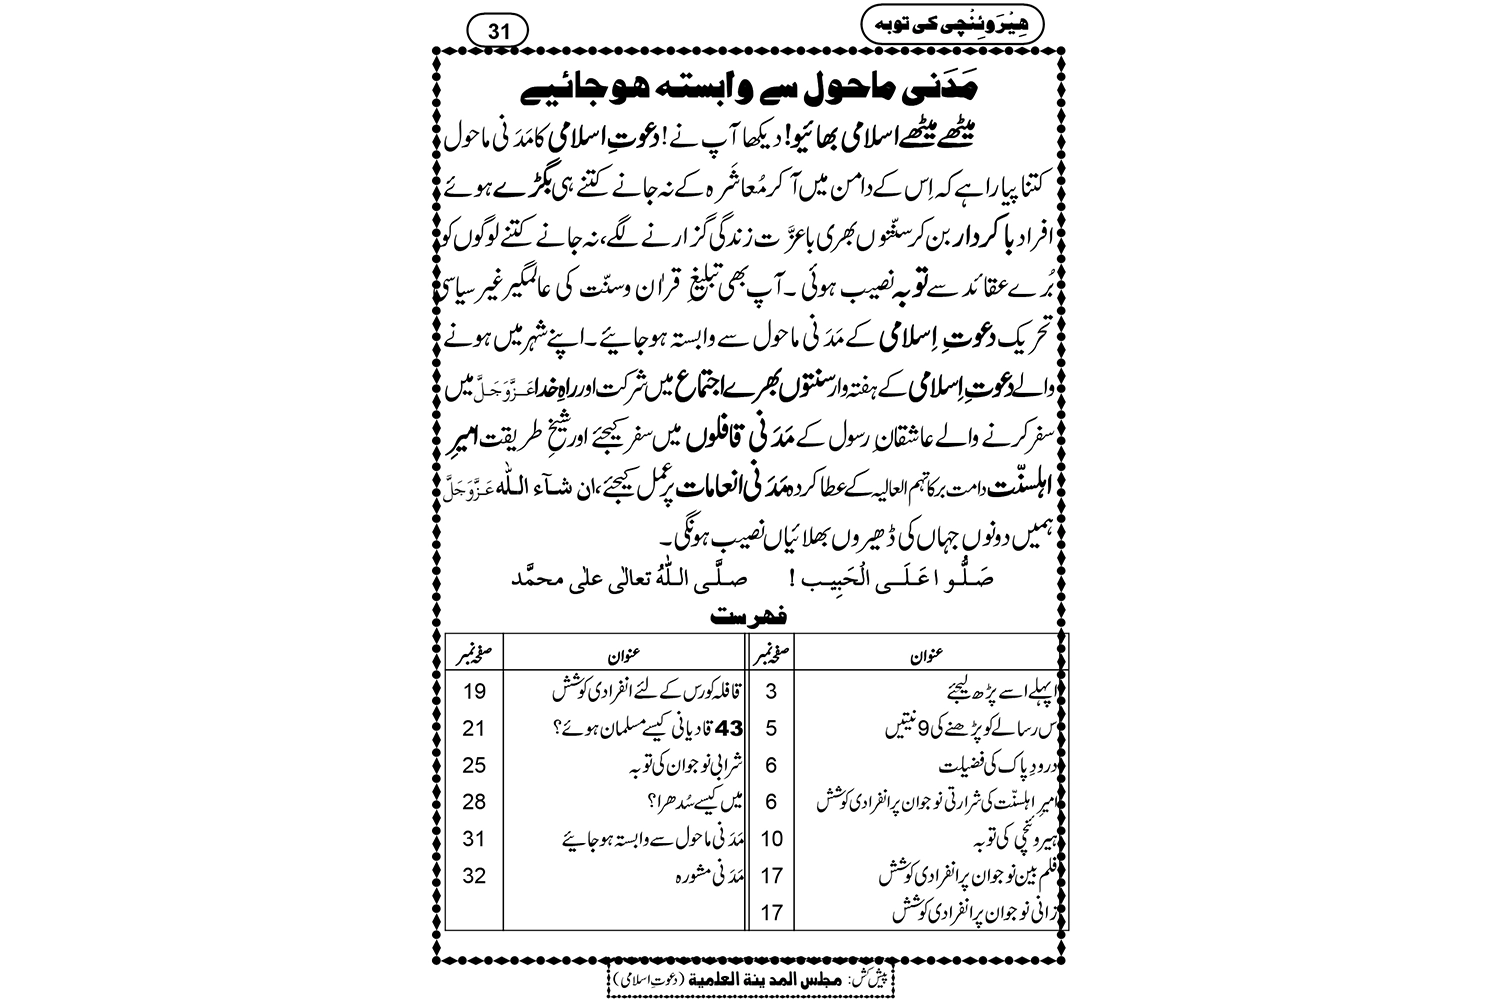 ہیروئنچی کی توبہ
31
مَدَنی ماحول سے وابستہ ہوجائیے
میٹھے میٹھے اسلامی بھائیو! دیکھا آپ نے! دعوتِ اسلامی کا مَدَنی ماحول
کتنا پیارا ہے کہ اِس کے دامن میں آکر مُعاشَرہ کے نہ جانے کتنے ہی بگڑے ہوئے
افراد باکردار بن کر سنّتوں بھری باعزَّت زندگی گزارنے لگے، نہ جانے کتنے لوگوں کو
بُرے عقائد سے توبہ نصیب ہوئی۔ آپ بھی تبلیغِ قرآن وسنّت کی عالمگیر غیر سیاسی
تحریک دعوتِ اِسلامی کے مَدَنی ماحول سے وابستہ ہوجایئے۔ اپنے شہر میں ہونے
والے دعوتِ اِسلامی کے ہفتہ وار سنتوں بھرے اجتماع میں شرکت اور راہِ خدا عَزَّوَجَلَّ میں
سفر کرنے والے عاشقانِ رسول کے مَدَنی قافلوں میں سفر کیجئے اور شیخِ طریقت امیرِ
اہلسنّت دامت برکاتہم العالیہ کے عطا کردہ مَدَنی انعامات پر عمل کیجئے، ان شآء اللہ عَزَّوَجَلَّ
ہمیں دونوں جہاں کی ڈھیروں بھلائیاں نصیب ہونگی۔
صَلُّوا عَلَی الْحَبِیب ! صلَّی اللہُ تعالٰی علٰی محمَّد
فہرست
عنوان صفحہ نمبر عنوان صفحہ نمبر
ا پہلے اسے پڑھ لیجئے 3 قافلہ کورس کے لئے انفرادی کوشش 19
س رسالے کو پڑھنے کی 9 نیتیں 5 43 قادیانی کیسے مسلمان ہوئے؟ 21
درودِ پاک کی فضیلت 6 شرابی نوجوان کی توبہ 25
امیرِ اہلسنّت کی شرارتی نوجوان پر انفرادی کوشش 6 میں کیسے سُدھرا؟ 28
ہیروئنچی کی توبہ 10 مَدَنی ماحول سے وابستہ ہوجایئے 31
فلم بین نوجوان پر انفرادی کوشش 17 مَدَنی مشورہ 32
زانی نوجوان پر انفرادی کوشش 17
پیش کش: مجلس المدینۃ العلمیۃ (دعوتِ اسلامی)